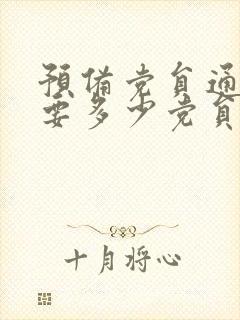 預備党員通
要多少党員
十月将心